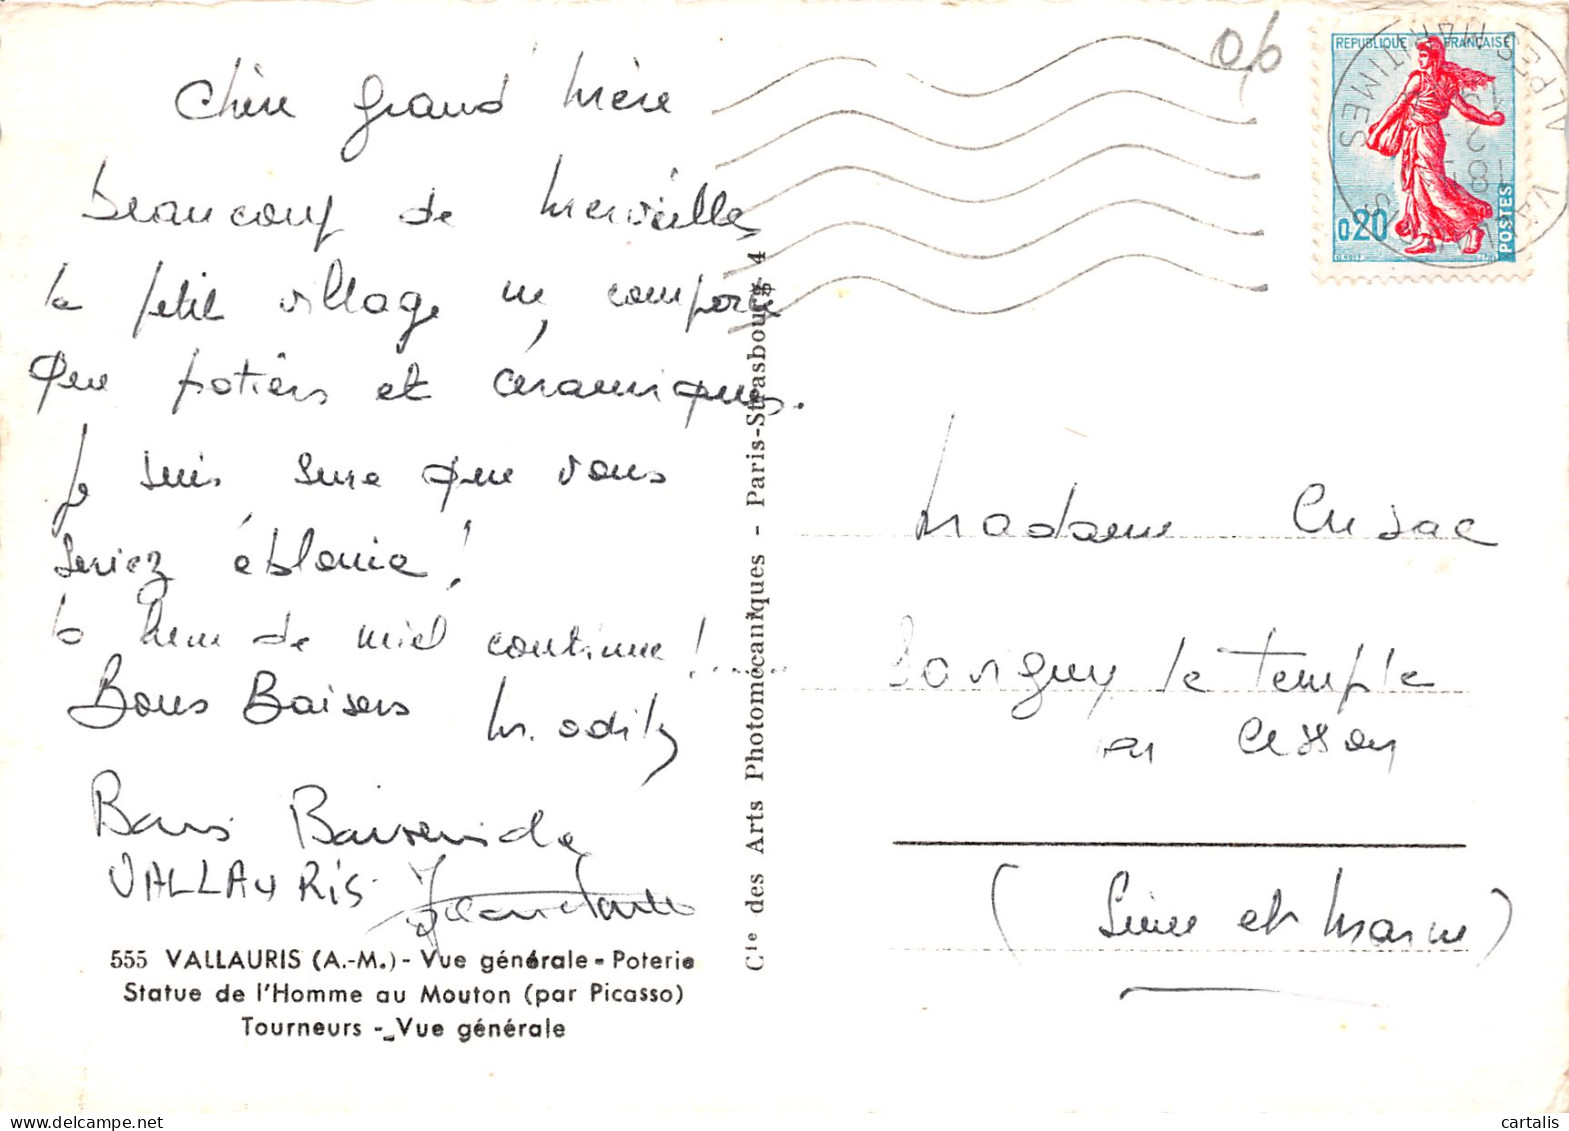 Chère grand'mère
beaucoup de merveilles,
le petit village ne comporte
que potiers et céramiques.
Je suis sure que vous
seriez éblouie !
la lune de miel continue !......
Bons Baisers M. odile
Bons Baisers de
VALLAURIS
555 VALLAURIS (A.-M.) - Vue générale - Poterie
Statue de l'Homme au Mouton (par Picasso)
Tourneurs - Vue générale
Cie des Arts Photomécaniques - Paris-Strasbourg 4
06
REPUBLIQUE FRANÇAISE
0,20
POSTES
VALLAURIS
ALPES MARITIMES
Madame Cusac
Savigny le Temple
en Cesson
(Seine et Marne)
cartalis